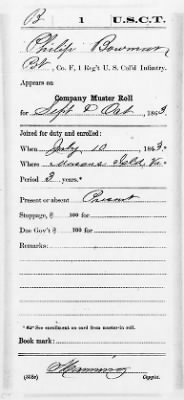 B | 1 | U.S.C.T.
Philip Bowman
Pvt, Co. F, 1 Reg't U. S. Col'd Infantry.
Appears on
Company Muster Roll
for Sept & Oct, 1863.
Joined for duty and enrolled:
When July 10, 1863.
Where Masons Isld, Va.
Period 3 years.*
Present or absent Present
Stoppage, $ 100 for
Due Gov't $ 100 for
Remarks:
* See enrollment on card from muster-in roll.
Book mark:
(358c) Copyist.